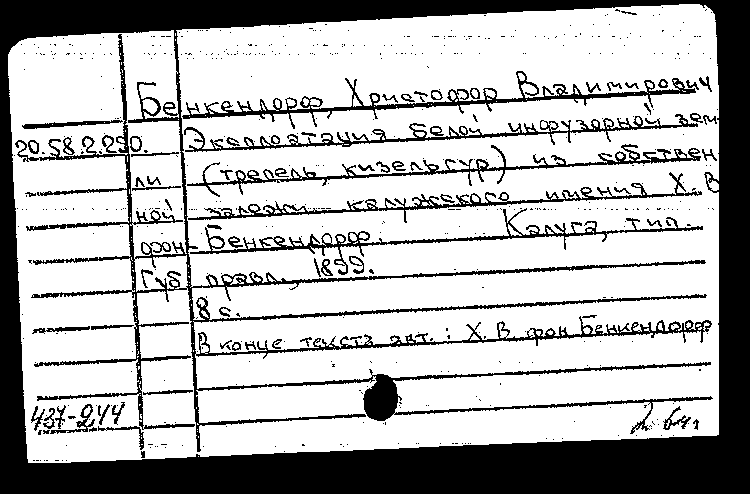 Бенкендорф, Христофор Владимирович
20.58.2.290. Эксплоатация белой инфузорной зем-
ли (трепель, кизельгур) из собствен
ной залежи калужского имения Х. В
фон-Бенкендорф. Калуга, тип.
Губ правл., 1899.
8 с.
В конце текста авт.: Х. В. фон Бенкендорф
437-244